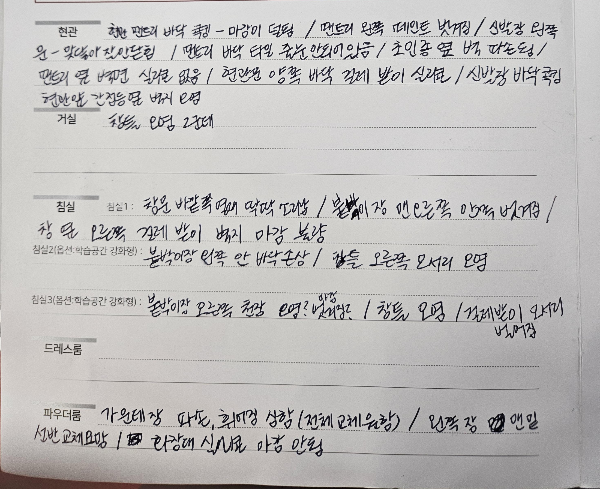 현관 현관 팬트리 바닥 코킹 - 마감이 덜됨 / 팬트리 왼쪽 페인트 벗겨짐 / 신발장 왼쪽
문 - 맞닿아 잘 안닫힘 / 팬트리 바닥 타일 줄눈 안되어있음 / 초인종 옆 벽 파손됨 /
팬트리 옆 벽면 실리콘 없음 / 현관문 양쪽 바닥 걸레 받이 실리콘 / 신발장 바닥 코킹
현관앞 간접등 옆 벽지 오염
거실 창틀 오염 2군데
침실 침실1 : 창문 바깥쪽 딱딱 소리남 / 붙박이장 맨 오른쪽 안쪽 벗겨짐 /
창 옆 오른쪽 걸레 받이 벽지 마감 불량
침실2(옵션:학습공간 강화형) : 붙박이장 왼쪽 안 바닥손상 / 창틀 오른쪽 모서리 오염
침실3(옵션:학습공간 강화형) : 붙박이장 오른쪽 천장 오염? 마감 벗겨짐? / 창틀 오염 / 걸레받이 모서리
벌어짐
드레스룸
파우더룸 가운데장 파손, 휘어짐 심함 (전체 교체요함) / 왼쪽 장 맨밑
선반 교체요망 / 화장대 실리콘 마감 안됨